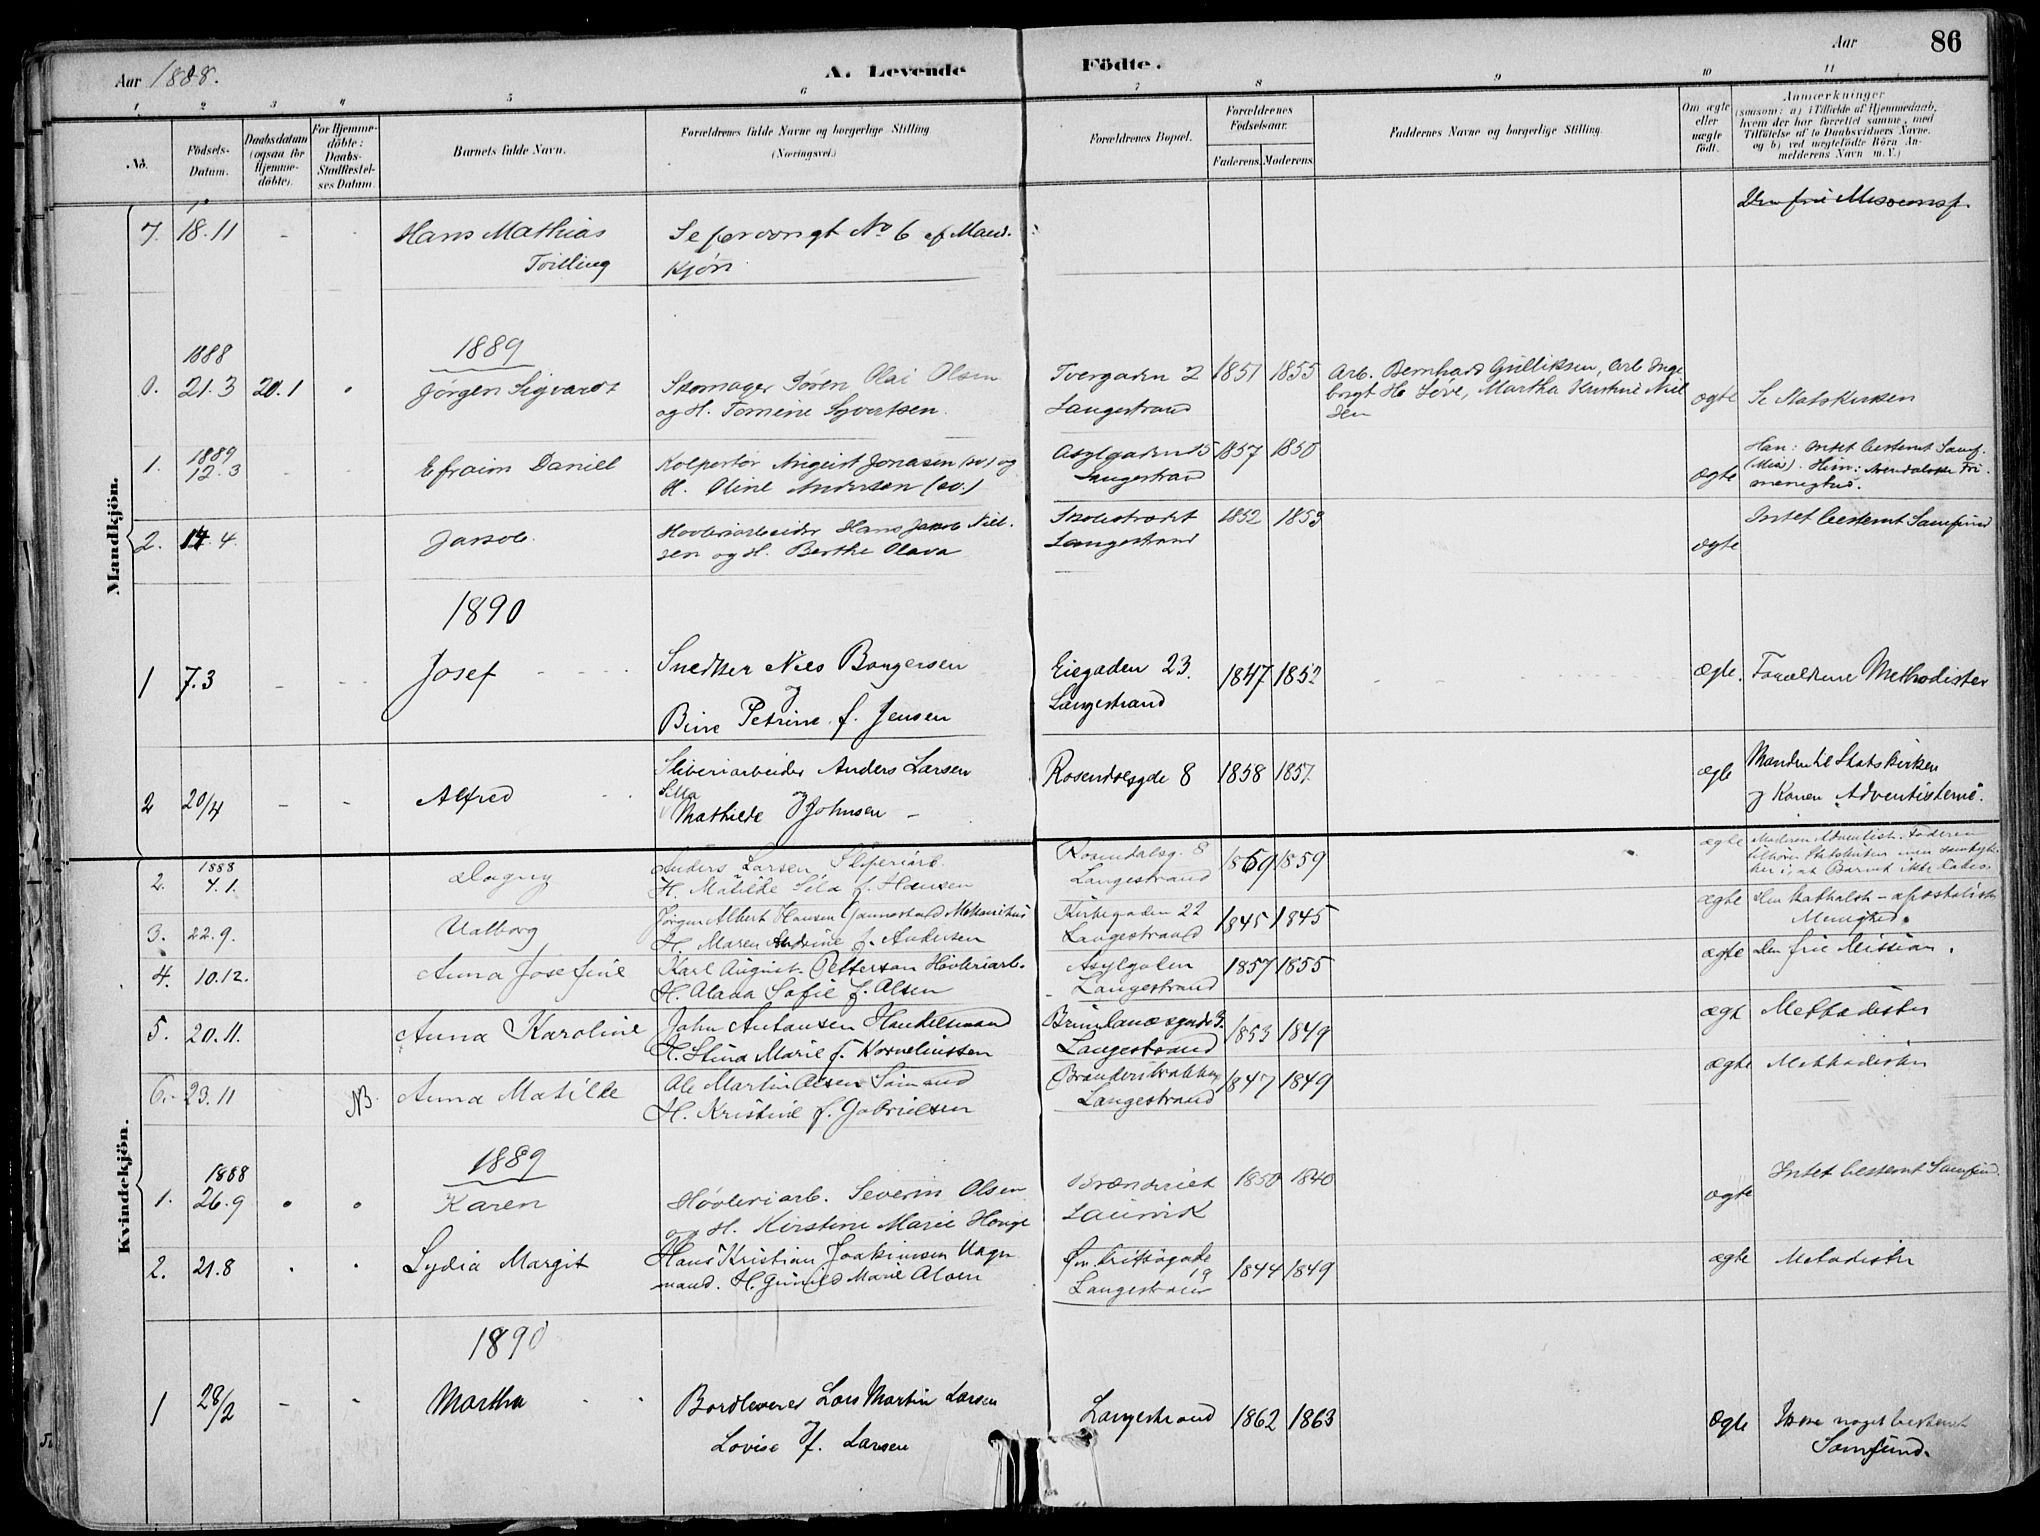 Aar 1888.
A. Levende Födte.
Aar
86
1 2 3 4 5 6 7 8 9 10 11
No.
Födsels-Datum.
Daabsdatum (ogsaa for Hjemme-döbte).
For Hjemme-döbte: Daabs-Stadfæstel-ses Datum.
Barnets fulde Navn.
Forældrenes fulde Navne og borgerlige Stilling (Næringsvei.)
Forældrenes Bopæl.
Forældrenes Födselsaar.
Faderens. Moderens.
Faddernes Navne og borgerlige Stilling.
Om ægte eller uægte födt.
Anmærkninger
(saasom: a) i Tilfælde af Hjemmedaab, hvem der har forrettet samme, med Tilföielse af to Daabsvidners Navne, og b) ved uægtefödte Börn An-melderens Navn m. V.)
Mandkjön.
7. 18.11 - - Hans Mathias Tvilling
Se forrongt No 6 af Mand. kjön
Den frie Missionsf.
1889
1888
0. 21.3 20.1 Jørgen Sigvardt
Skomager Søren Olai Olsen
og H. Tomine Syvertsen.
Tvergaden 2
Langestrand
1851 1855
Arb. Bernhard Gulliksen, Arb. Inge
borgt H. Löve, Martha Kristine Niel
sen
ægte Se Statskirken
1889
1. 12.3 Efraim Daniel
Kolportør August Jonasen (sv.) og
H. Oline Andersen (sv.)
Asylgaden 15
Langestrand
1857 1850
ægte
Han: intet bestemt Samf.
(Mis). Hun: Arendalske Fri-
menighed.
2. 14.4. Jakob.
Høvleriarbeider Hans Jakob Niel-
sen og H. Berthe Olava
Skolestrædet
Langestrand
1852 1853
ægte
Intet bestemt Samfund
1890
1 7.3 - - Josef
Snedker Nils Borgersen
og
Bine Petrine f. Jensen
Eiegaden 23.
Langestrand
1847 1852
ægte. Forældrene Methodister
2 20/4 - - Alfred
Sliberiarbeider Anders Larsen
Sella
Mathilde f Johnsen -
Rosendalsgde 8 1858 1857
ægte
Manden til Statskirken
og Konen Adventisterne.
Kvindekjön.
1888
2. 4.1. Dagny
Anders Larsen, Sliperiarb.
H. Matilde Sela f. Hansen
Rosendalsg. 8
Langestrand
1859 1859
ægte
Moderen Adventist. Faderen
tilhører Statskirken men samtyk-
ker i, at Barnet ikke døbes.
3. 22.9. Valborg
Jørgen Albert Hansen Gannestad Mekanikus
H. Maren Andrine f. Andersen
Kirkegaden 22
Langestrand
1845 1845
ægte
Den katholsk-apostoliske
Menighed.
4. 10.12. Anna Josefine
Karl August Petterson Høvleriarb.
H. Alava Sofie f. Alsen
Asylgaten
Langestrand
1857 1855
ægte Den frie Mission.
5. 20.11. Anna Karoline
John Antansen Handelsmand
H. Stina Marie f. Korneliussen
Brunlanæsgade 9.
Langestrand
1853 1849
ægt Methodister
6. 23.11 NB. Anna Matilde
Ole Martin Olsen Sømand
H. Kristine f. Gabrielsen
Brænderibakken
Langestrand
1847 1849
ægte Methodister
1889
1888
1. 26.9 Karen
Høvleriarb. Severin Olsen
og H. Kirstine Marie Honge
Brænderiet
Laurvik
1850 1840
ægte
Intet bestemt Samfund.
2. 21.8 Lydia Margit
Hans Kristian Joakimsen Vogn-
mand. H. Gunild Marie Alsen
19
Langestrand
1844 1849
ægte Metodister
1890
1 28/2 - - Martha
Bordleverer Lars Martin Larsen
Lovise f. Larsen
Langestrand
1862 1863
ægte
Ikke noget bestemt
Samfund.